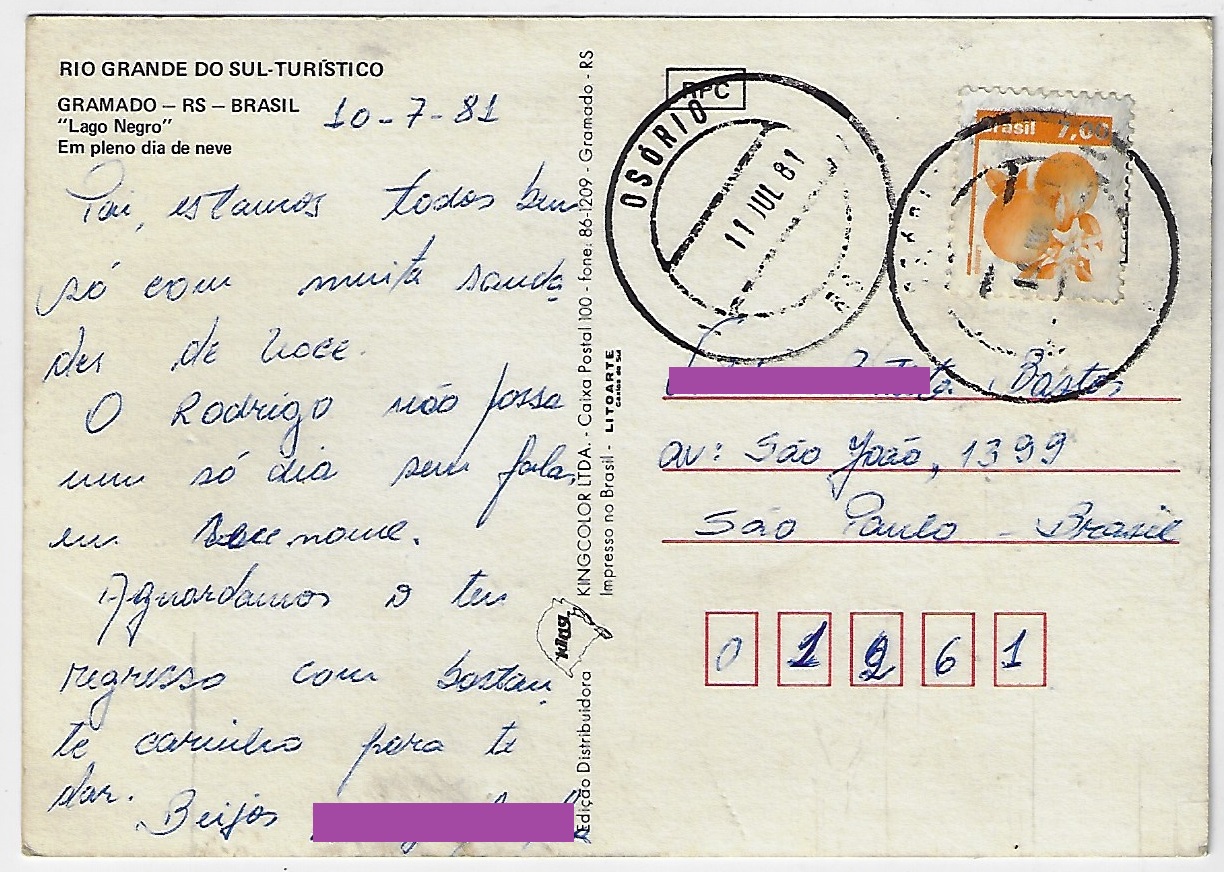 RIO GRANDE DO SUL-TURÍSTICO
GRAMADO – RS – BRASIL
"Lago Negro"
Em pleno dia de neve
10-7-81
Pai, estamos todos bem
só com muita sauda
des de voce.
O Rodrigo não passa
um só dia sem falar
em seu nome.
Aguardamos o teu
regresso com bastan
te carinho para te
dar.
Beijos
Edição Distribuidora king KINGCOLOR LTDA. - Caixa Postal 100 - fone: 86-1209 - Gramado - RS
Impresso no Brasil - LITOARTE
RPC
OSÓRIO
11 JUL 81
RS
Brasil 7,00
Bastos
av: São João, 1399
São Paulo - Brasil
0 1 2 6 1